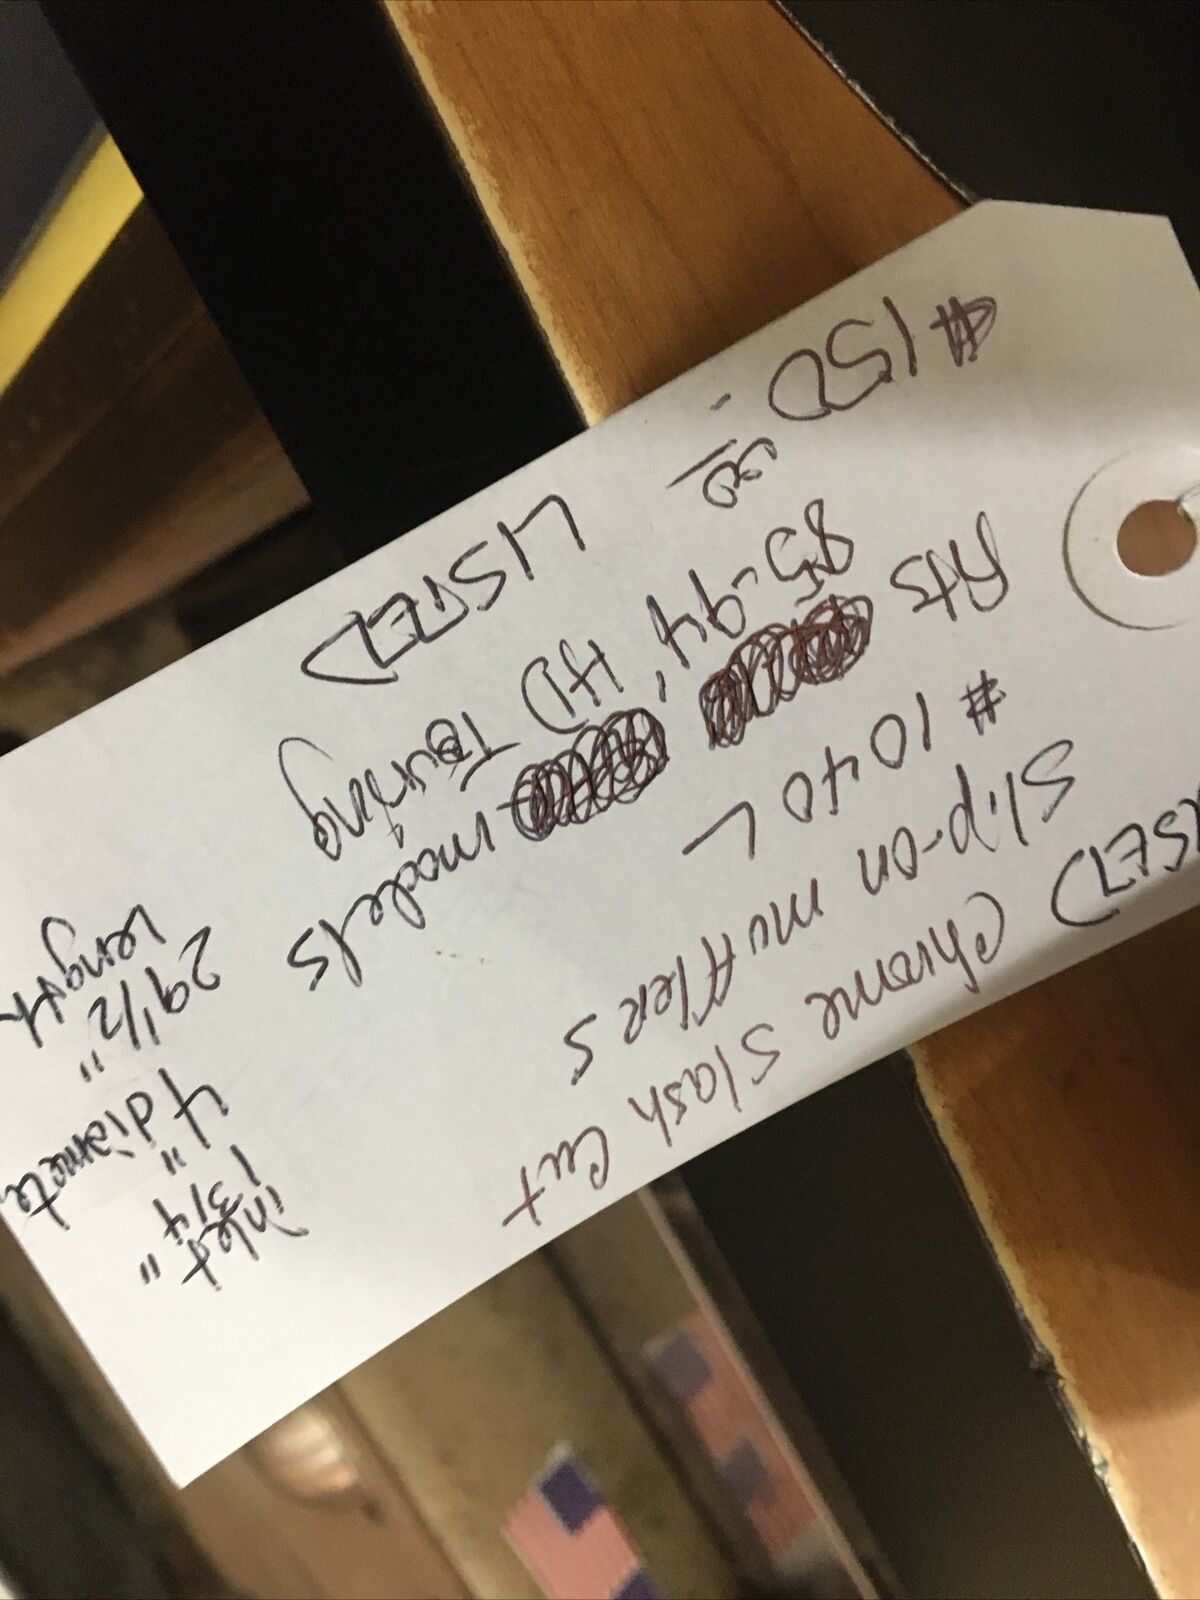 USED Chrome Slash Cut
Slip-on mufflers
# 1040 L
Fits
85-94, HD Touring
models
$150.00
LISTED
inlet
1 3/4"
4" diamete
29 1/2"
Length